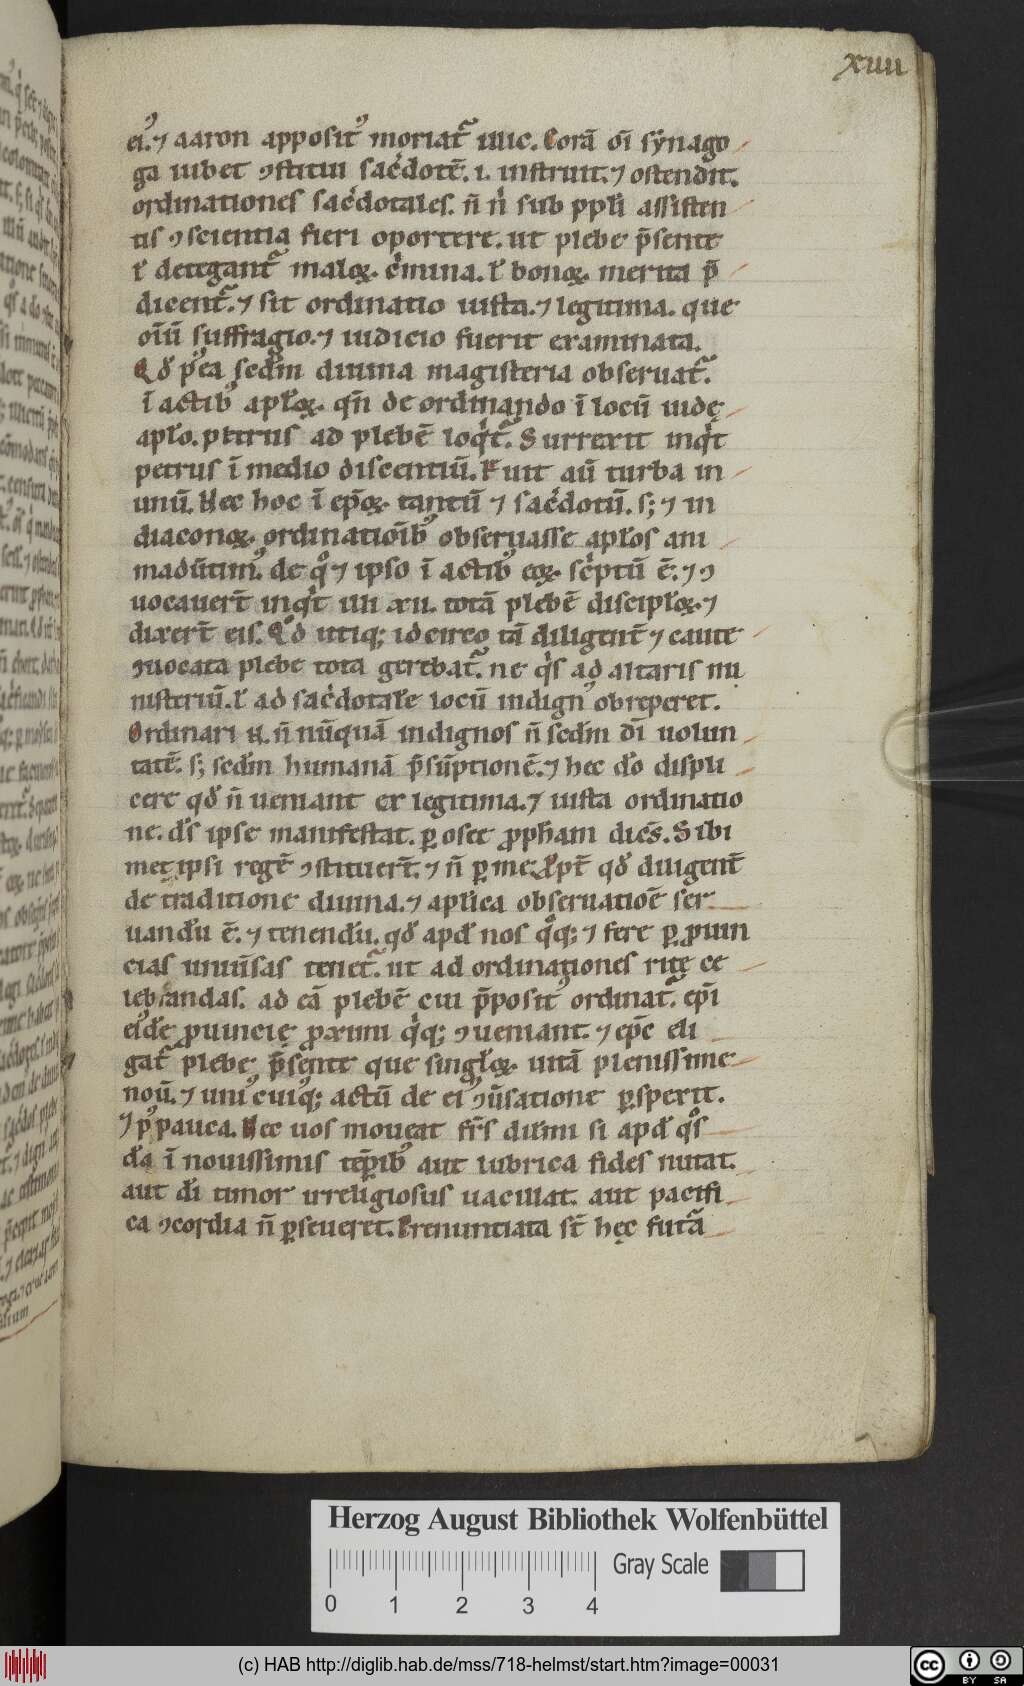 xiiii
ei᷒. ⁊ aaron apposit᷒ moriat᷑ illic. Corā oī synago
ga iubet ꝯstitui sac̓dotē. i. instruit. ⁊ ostendit.
ordinationes sac̓dotales. n̄ nͥ sub ppli assisten
tis ꝯscientia fieri oportere. ut plebe p̄sente
ł detegant᷑ maloꝝ cͥmina. ł bonoꝝ merita p̄
dicent᷑. ⁊ sit ordinatio iusta. ⁊ legitima. que
oīū suffragio. ⁊ iudicio fuerit examinata.
Qđ p᷒ea scđm diuina magisteria obseruat᷑.
ī actib᷒ apłoꝝ. qn̄ de ordinando ī locū iudę
apło. petrus ad plebē loqͥt᷑. Surrexit inqͥt
petrus ī medio discentiū. Fuit aū turba in
unū. Nec hoc ī ep̄oꝝ tantū ⁊ sac̓dotū. s; ⁊ in
diaconoꝝ ordinatioīb᷒ obseruasse apłos ani
maduͥtim᷒. de qͦ ⁊ ipso ī actib᷒ eoꝝ scͥptū ē. ⁊ ꝯ
uocauert̄ inqͥt illi xii. totā plebē discipłoꝝ. ⁊
dixert̄ eis. Qđ utiq; idcirco tā diligent̄ ⁊ caute
ꝯuocata plebe tota gerebat᷑. ne qͥs ad altaris mi
nisteriū. ł ad sac̓dotale locū indign᷒ obreperet.
Ordinari .N. n̄ nūquā indignos n̄ scđm dī uolun
tatē. s; scđm humanā p̄sūptionē. ⁊ hec do displi
cere qđ n̄ ueniant ex legitima. ⁊ iusta ordinatio
ne. ds ipse manifestat. ꝑ osee ꝓpham dicēs. Sibi
met ipsi regē ꝯstituert̄. ⁊ n̄ ꝑ me. Ꝓpt̄ qđ diligent̄
de traditione diuina. ⁊ aplica obseruatiōe ser
uandū ē. ⁊ tenendū. qđ apđ nos qͦq; ⁊ fere ꝑ ꝓuin
cias uniūsas tenet᷑. ut ad ordinationes ritę ce
lebrandas. ad eā plebē cui p̄posit᷒ ordinat᷑. ep̄i
ei᷒de ꝓuincię ꝓximi qͥq; ꝯueniant. ⁊ ep̄c eli
gat᷑ plebe p̄sente que singłoꝝ uitā plenissime
nou̅. ⁊ uni᷒cui᷒q; actū de ei᷒ ꝯūsatione ꝑspexit.
⁊ p᷒ pauca. Nec uos moueat fr̄s dilͥmi si apđ qͦs
dā ī nouissimis tēp̄ib᷒ aut lubrica fides nutat.
aut dī timor irreligiosus uacillat. aut pacifi
ca ꝯcordia n̄ ꝑseueret. Prenuntiata st̄ hęc futā
Herzog August Bibliothek Wolfenbüttel
Gray Scale
0 1 2 3 4
(c) HAB http://diglib.hab.de/mss/718-helmst/start.htm?image=00031
cc BY SA